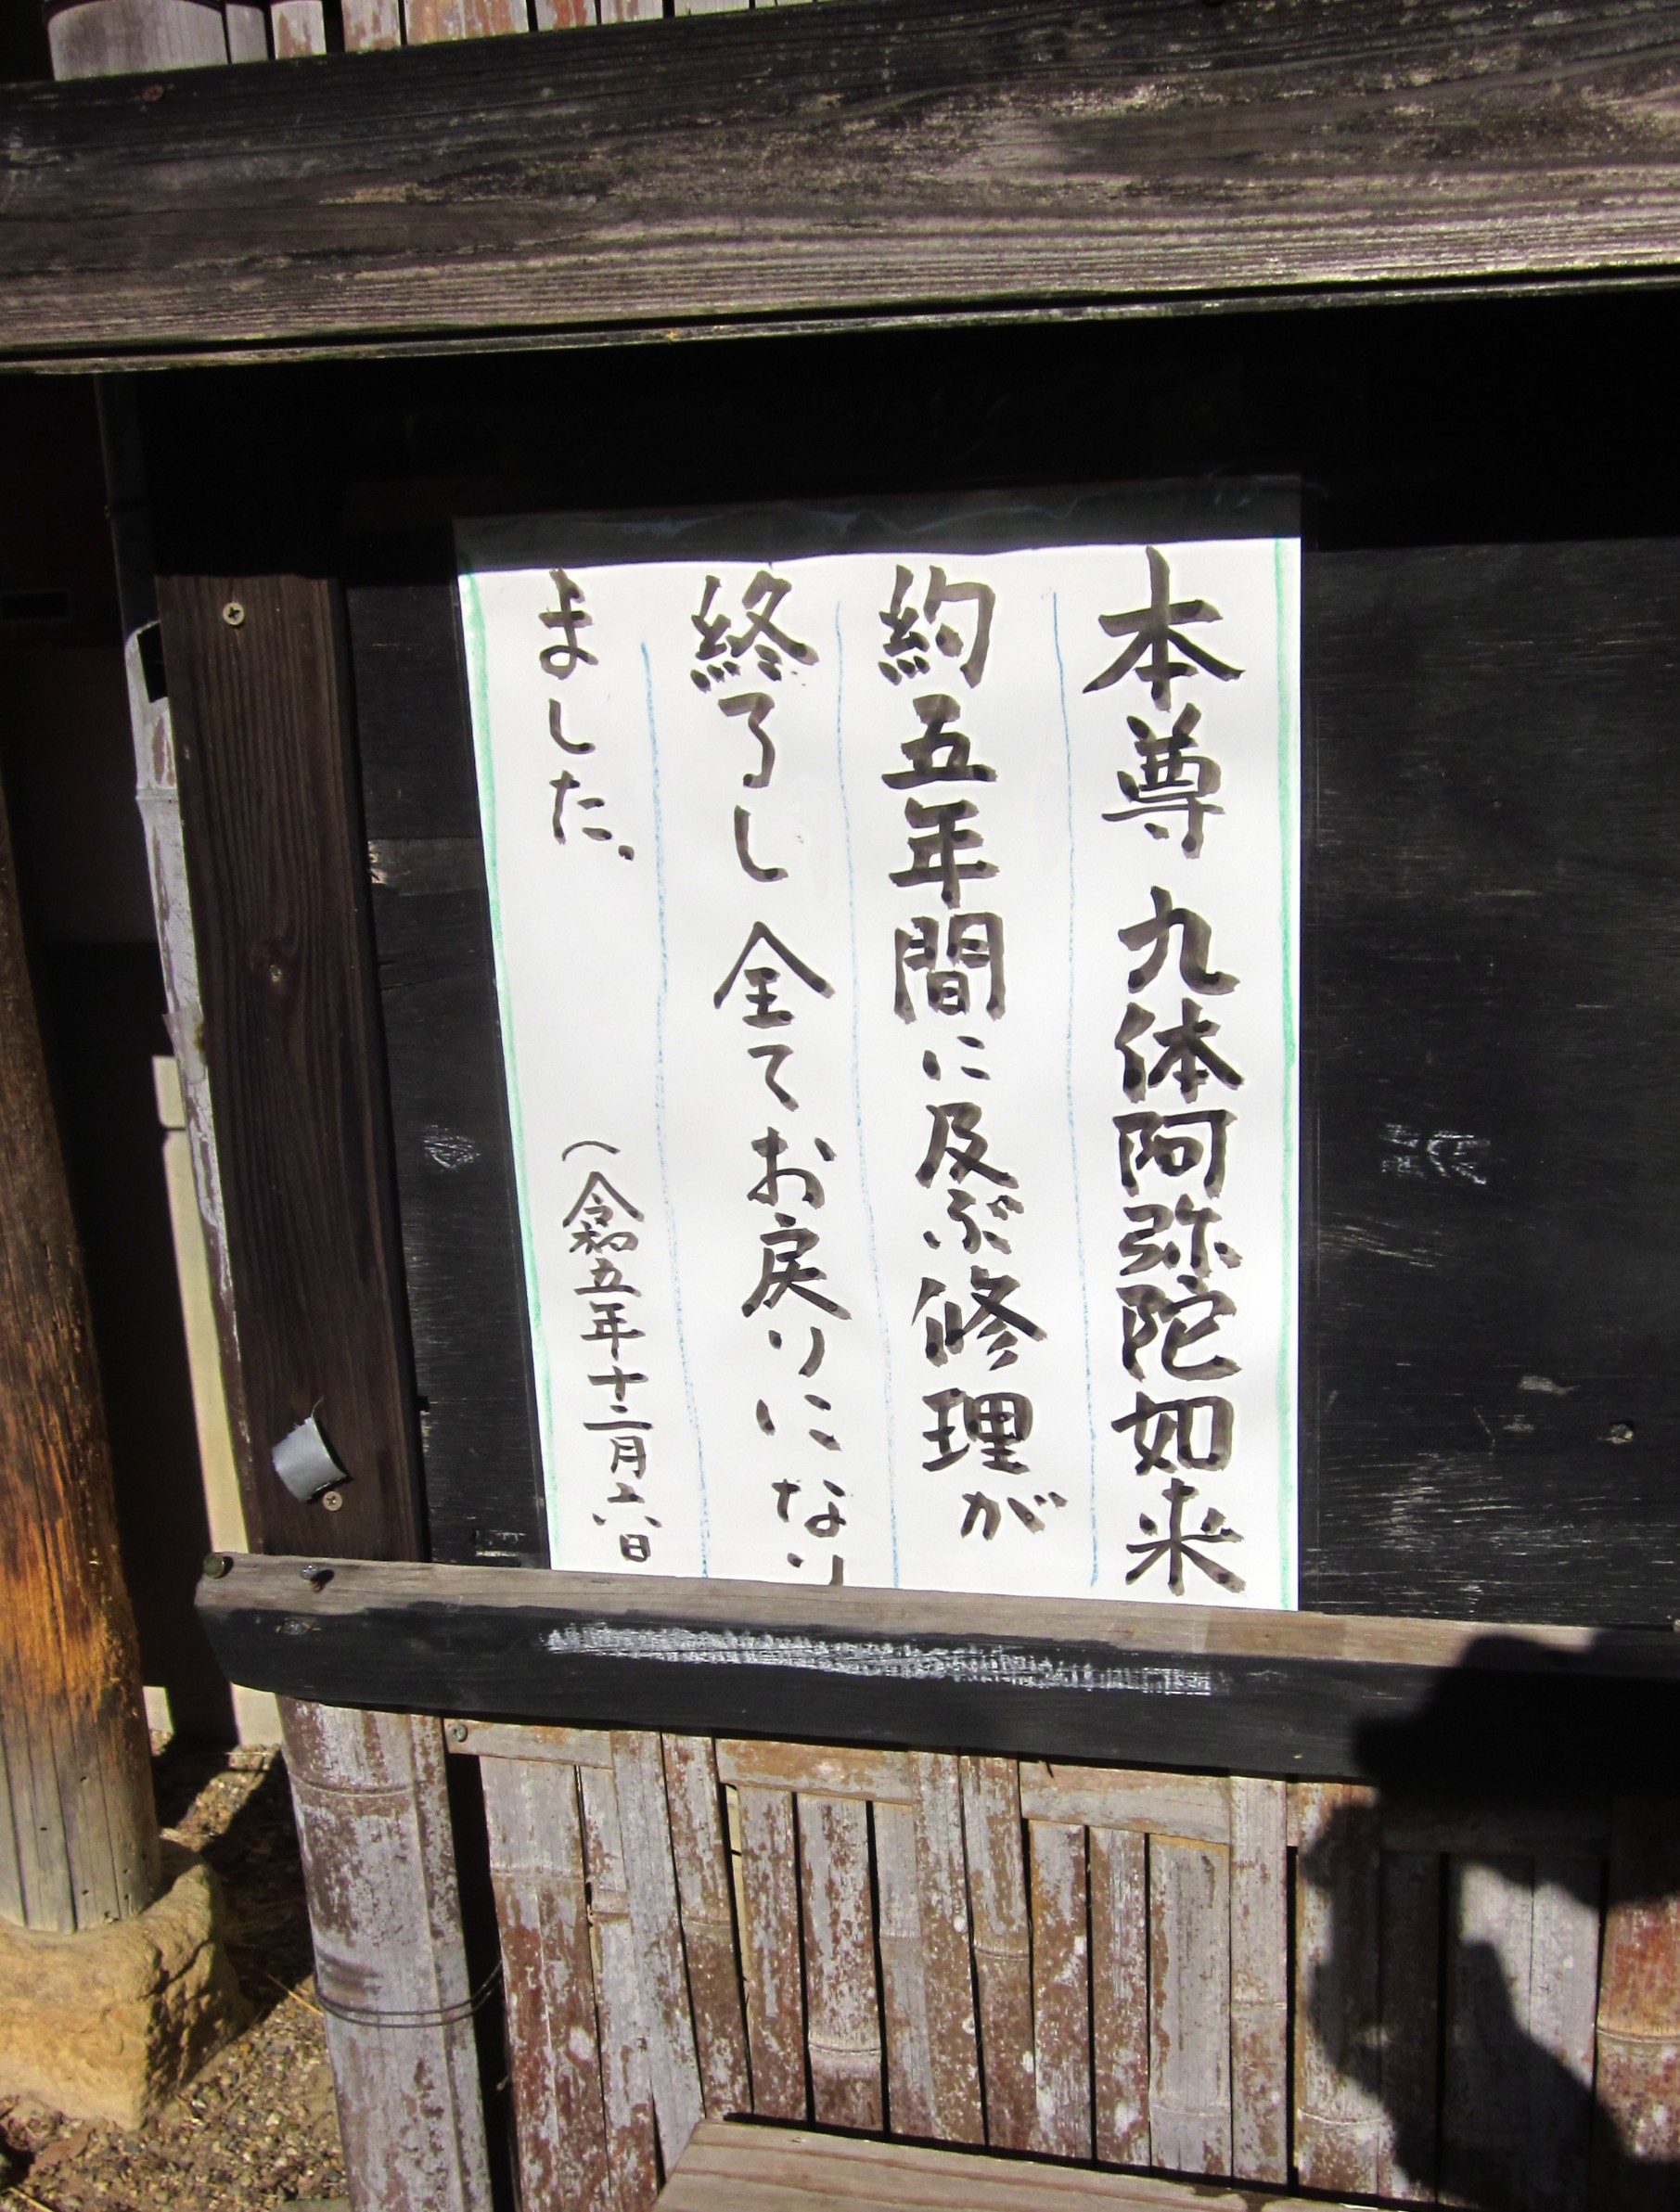 本尊 九体阿弥陀如来
約五年間に及ぶ修理が
終了し 全てお戻りになり
ました。
(令和五年十二月六日